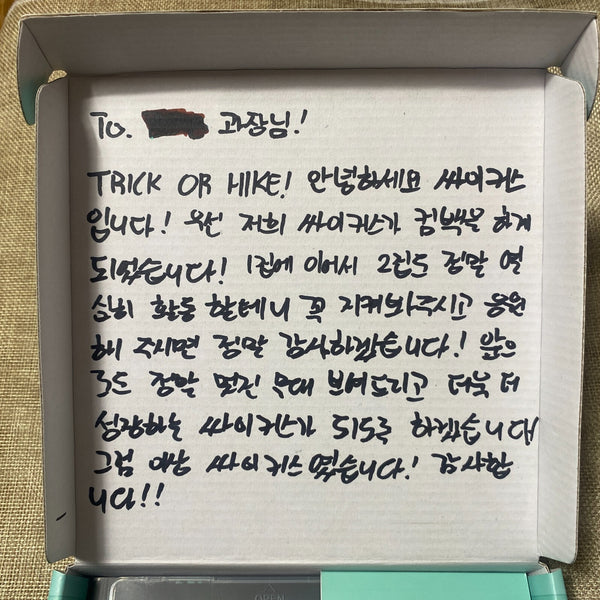 To. 과장님!
TRICK OR HIKE! 안녕하세요 싸이커스
입니다! 우선 저희 싸이커스가 컴백을 하게
되었습니다! 1집에 이어서 2집도 정말 열
심히 활동 할테니 꼭 지켜봐주시고 응원
해 주시면 정말 감사하겠습니다! 앞으
로도 정말 멋진 무대 보여드리고 더욱 더
성장하는 싸이커스가 되도록 하겠습니다!
그럼 이상 싸이커스였습니다! 감사합
니다!!
OPEN